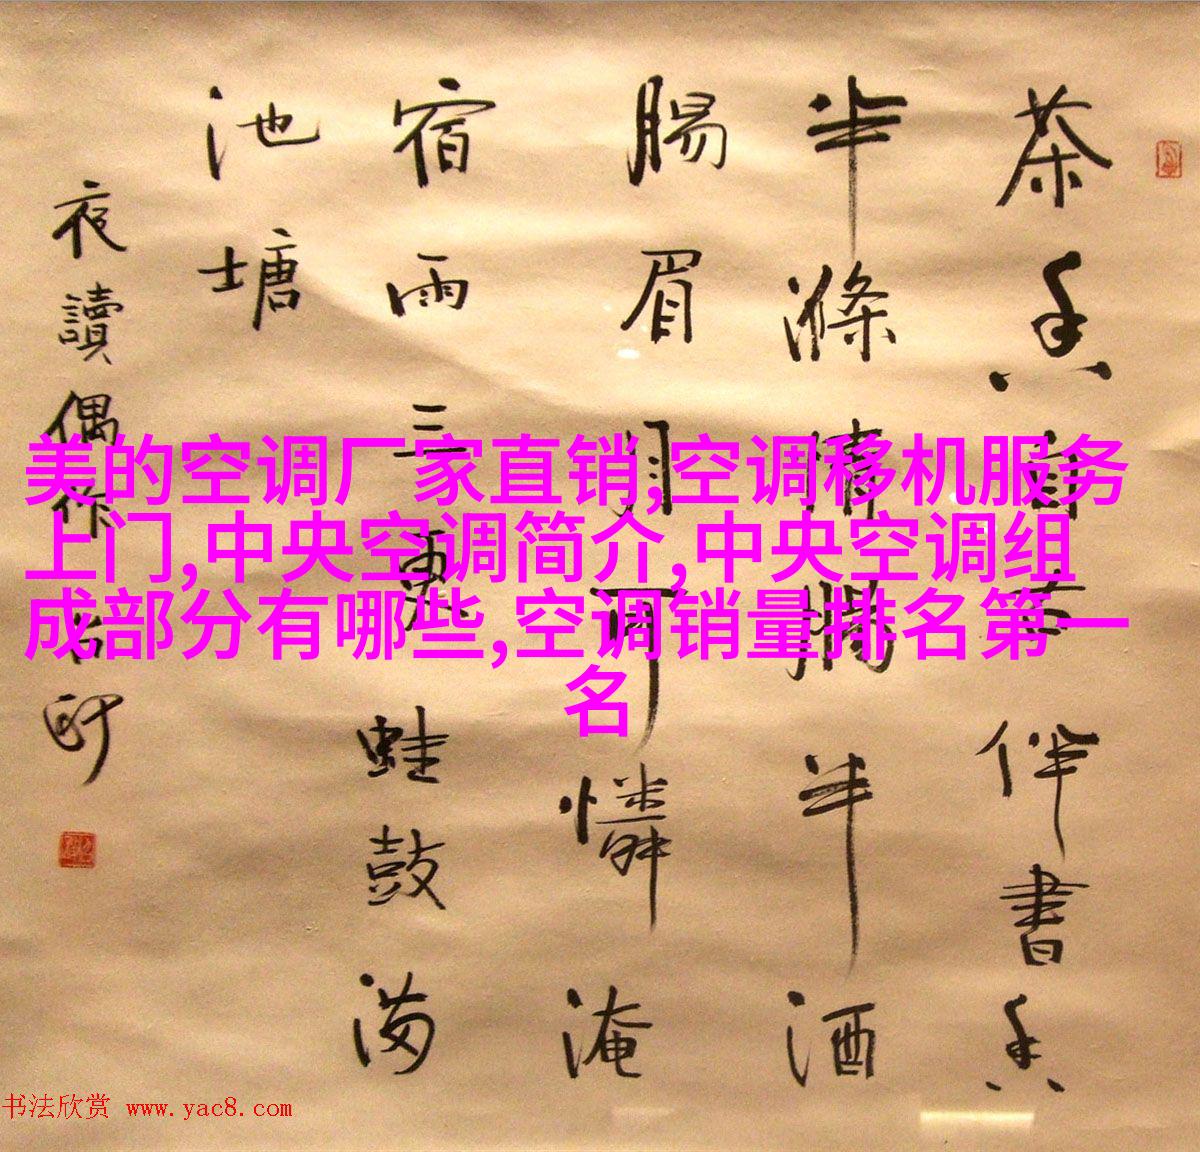 茶香自伴書香
半滌情半酒
腸眉月可憐淹
宿雨三更蛙鼓满
池塘
夜讀偶作
美的空调厂家直销,空调移机服务
上门,中央空调简介,中央空调组
成部分有哪些,空调销量排名第一
名
书法欣赏 www.yac8.com